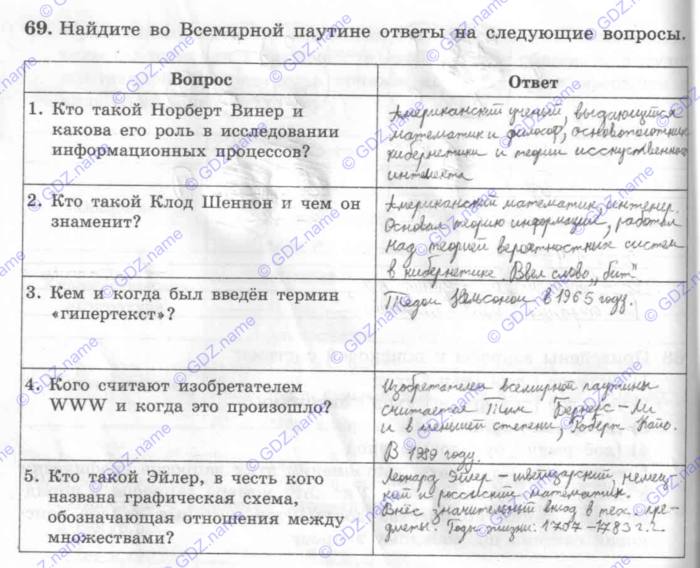 69. Найдите во Всемирной паутине ответы на следующие вопросы.
Вопрос
Ответ
1. Кто такой Норберт Винер и
какова его роль в исследовании
информационных процессов?
Американский ученый, выдающийся
математик и философ, основоположник
кибернетики и теории искуственного
интелекта
2. Кто такой Клод Шеннон и чем он
знаменит?
Американский математик, инженер.
Основал теорию информации, работал
над теорией вероятностных систем
в кибернетике. Ввел слово „бит"
3. Кем и когда был введён термин
«гипертекст»?
Тедом Нельсоном в 1965 году.
4. Кого считают изобретателем
WWW и когда это произошло?
Изобретателем всемирной паутины
считается Тим Бернерс-Ли
и в меньшей степени, Роберт Кайо.
В 1989 году.
5. Кто такой Эйлер, в честь кого
названа графическая схема,
обозначающая отношения между
множествами?
Леонард Эйлер - швейцарский, немец-
кий и российский математик.
Внёс значительный вклад в тех. пре-
дметы. Годы жизни: 1707-1783 г.г.
© GDZ.name